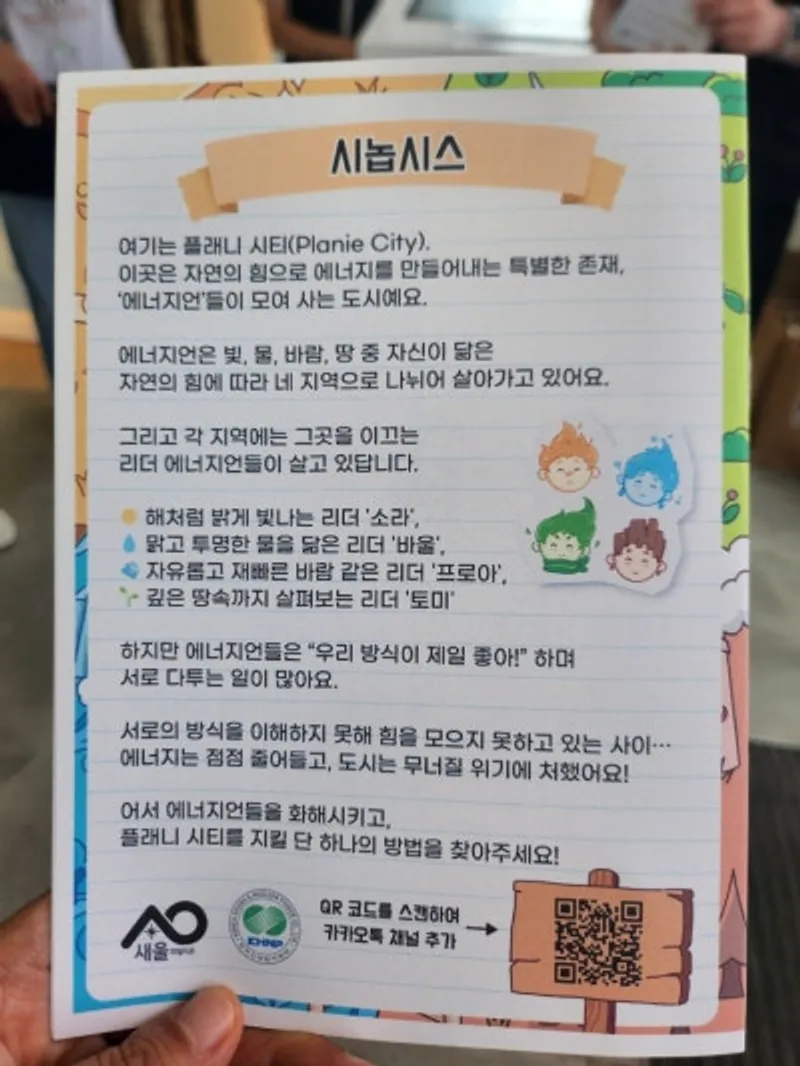 시놉시스
여기는 플래니 시티(Planie City).
이곳은 자연의 힘으로 에너지를 만들어내는 특별한 존재,
'에너지언'들이 모여 사는 도시예요.
에너지언은 빛, 물, 바람, 땅 중 자신이 닮은
자연의 힘에 따라 네 지역으로 나뉘어 살아가고 있어요.
그리고 각 지역에는 그곳을 이끄는
리더 에너지언들이 살고 있답니다.
해처럼 밝게 빛나는 리더 '소라',
맑고 투명한 물을 닮은 리더 '바울',
자유롭고 재빠른 바람 같은 리더 '프로아',
깊은 땅속까지 살펴보는 리더 '토미'
하지만 에너지언들은 “우리 방식이 제일 좋아!” 하며
서로 다투는 일이 많아요.
서로의 방식을 이해하지 못해 힘을 모으지 못하고 있는 사이…
에너지는 점점 줄어들고, 도시는 무너질 위기에 처했어요!
어서 에너지언들을 화해시키고,
플래니 시티를 지킬 단 하나의 방법을 찾아주세요!
새울
KHNP
QR 코드를 스캔하여
카카오톡 채널 추가